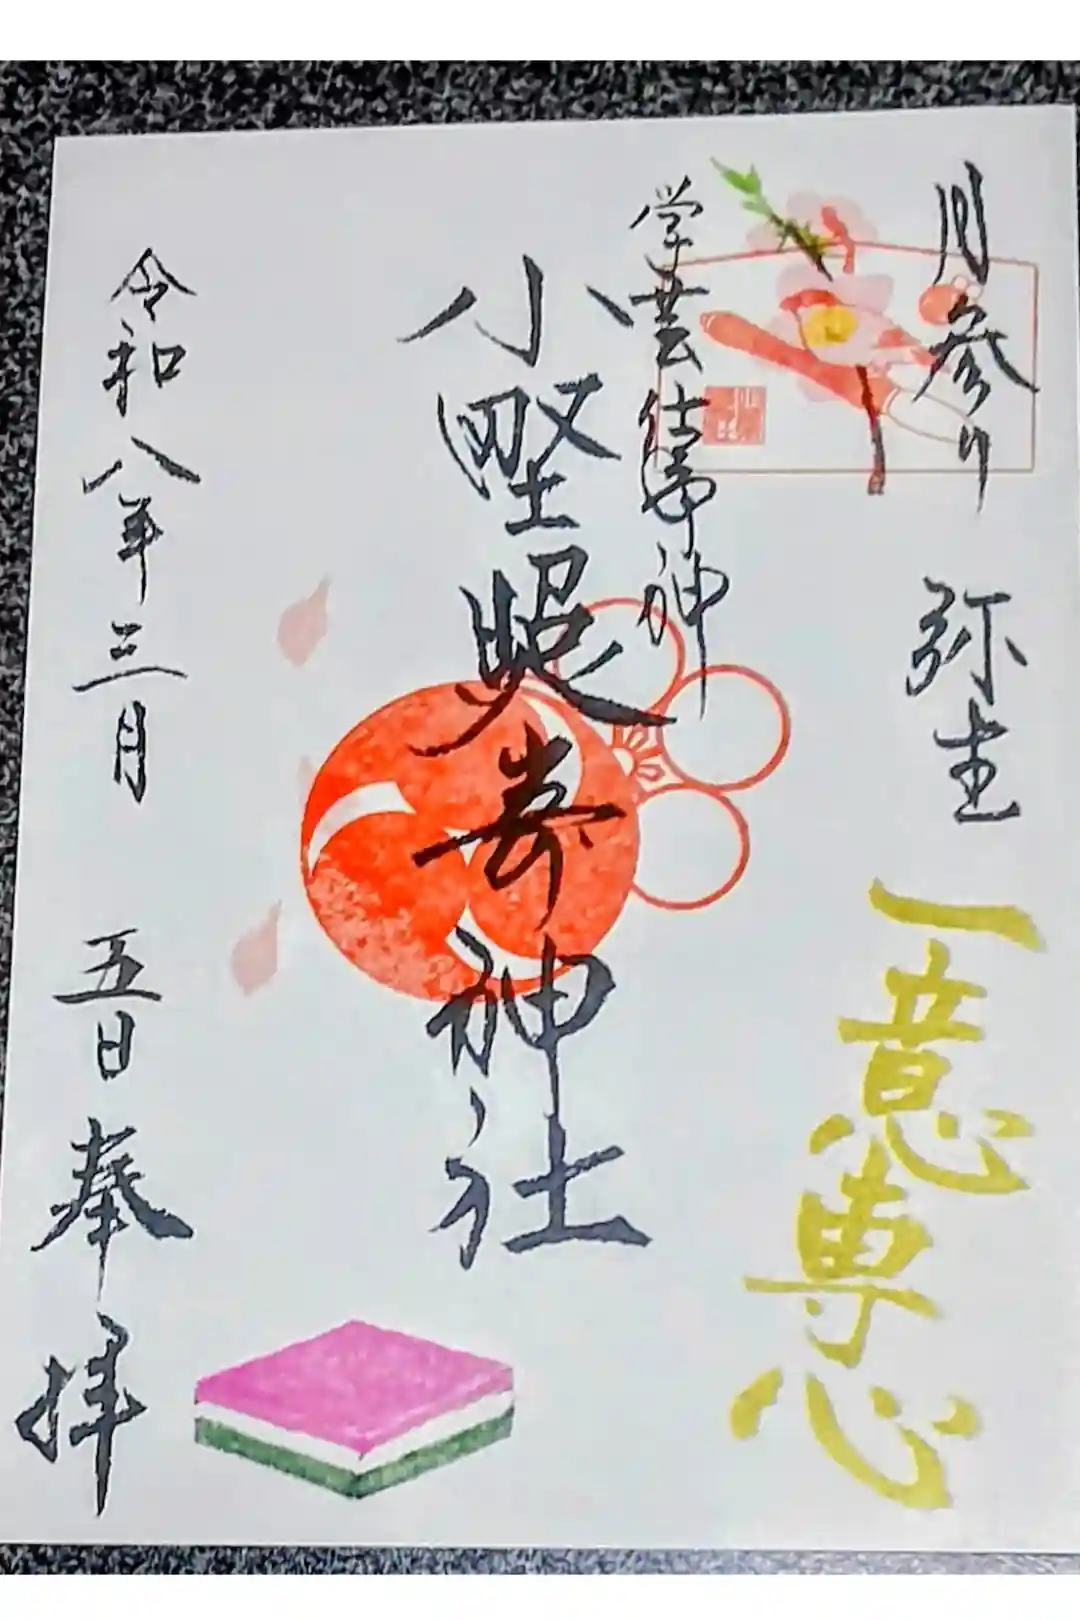 月参り 弥生
一意専心
学芸仕事神
小野照崎神社
令和八年三月 五日 奉拝